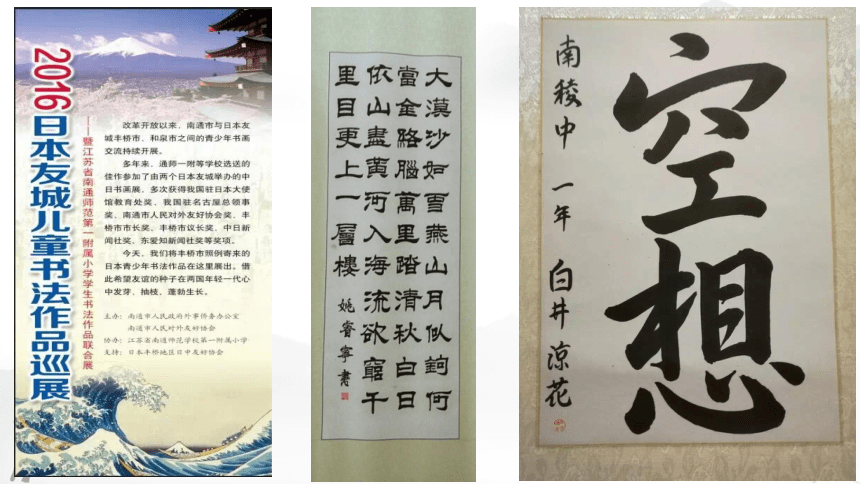 2016日本友城儿童书法作品巡展
——暨江苏省南通师范第一附属小学学生书法作品联合展
改革开放以来，南通市与日本友
城丰桥市、和泉市之间的青少年书画
交流持续开展。
多年来，通师一附等学校选送的
佳作参加了由两个日本友城举办的中
日书画展，多次获得我国驻日本大使
馆教育处奖、我国驻名古屋总领事
奖、南通市人民对外友好协会奖、丰
桥市市长奖、丰桥市议长奖、中日新
闻社奖、东爱知新闻社奖等奖项。
今天，我们将丰桥市照例寄来的
日本青少年书法作品在这里展出。借
此希望友谊的种子在两国年轻一代心
中发芽、抽枝、蓬勃生长。
主办：南通市人民政府外事侨务办公室
南通市人民对外友好协会
协办：江苏省南通师范学校第一附属小学
支持：日本丰桥地区日中友好协会
大漠沙如雪燕山月似鉤何
當金絡腦萬里踏清秋白日
依山盡黃河入海流欲窮千
里目更上一層樓
姚睿寧書
空想
南稜中 一年 白井涼花